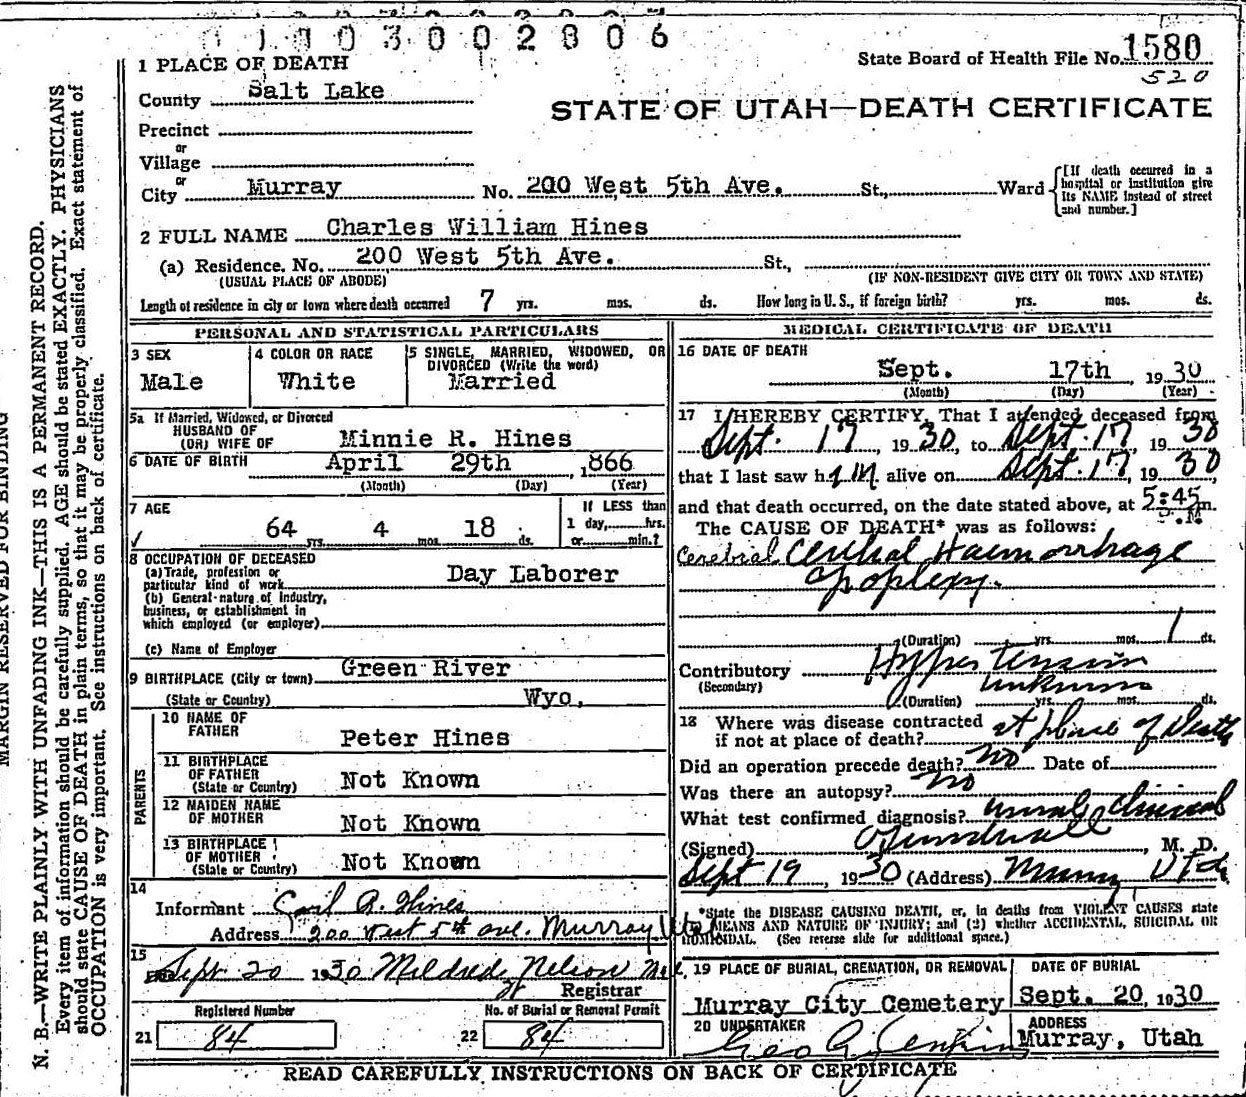 1003002006
State Board of Health File No. 1580
520
STATE OF UTAH—DEATH CERTIFICATE
1 PLACE OF DEATH
County Salt Lake
Precinct
or
Village
or
City Murray No. 200 West 5th Ave. St., Ward
[If death occurred in a
hospital or institution give
its NAME instead of street
and number.]
2 FULL NAME Charles William Hines
(a) Residence. No. 200 West 5th Ave. St.,
(USUAL PLACE OF ABODE) (IF NON-RESIDENT GIVE CITY OR TOWN AND STATE)
Length of residence in city or town where death occurred 7 yrs. mos. ds. How long in U. S., if foreign birth? yrs. mos. ds.
PERSONAL AND STATISTICAL PARTICULARS
3 SEX
Male
4 COLOR OR RACE
White
5 SINGLE, MARRIED, WIDOWED, OR
DIVORCED (Write the word)
Married
5a If Married, Widowed, or Divorced
HUSBAND OF
(OR) WIFE OF Minnie R. Hines
6 DATE OF BIRTH April 29th 1866
(Month) (Day) (Year)
7 AGE
64 yrs. 4 mos. 18 ds.
If LESS than
1 day, hrs.
or min.?
8 OCCUPATION OF DECEASED
(a) Trade, profession or
particular kind of work Day Laborer
(b) General nature of Industry,
business, or establishment in
which employed (or employer)
(c) Name of Employer
9 BIRTHPLACE (City or town) Green River
(State or Country) Wyo.
PARENTS
10 NAME OF
FATHER Peter Hines
11 BIRTHPLACE
OF FATHER
(State or Country) Not Known
12 MAIDEN NAME
OF MOTHER Not Known
13 BIRTHPLACE
OF MOTHER
(State or Country) Not Known
14
Informant A. Hines
Address 200 West 5th ave. Murray, Utah
15
Sept 20 1930 Mildred Nelson
Registrar
Registered Number
21 84
No. of Burial or Removal Permit
22 84
MEDICAL CERTIFICATE OF DEATH
16 DATE OF DEATH
Sept. 17th 1930
(Month) (Day) (Year)
17 I HEREBY CERTIFY, That I attended deceased from
Sept. 17, 1930, to Sept. 17, 1930
that I last saw him alive on Sept. 17, 1930,
and that death occurred, on the date stated above, at 5:45 m.
P.M.
The CAUSE OF DEATH* was as follows:
Cerebral Cerebral Haemorrhage
Apoplexy.
(Duration) yrs. mos. 1 ds.
Contributory Hypertension
(Secondary) unknown
(Duration) yrs. mos. ds.
18 Where was disease contracted
if not at place of death? at place of Death
Did an operation precede death? no Date of
Was there an autopsy? no
What test confirmed diagnosis? clinical
(Signed) , M. D.
Sept 19, 1930 (Address) Murray Utah
*State the DISEASE CAUSING DEATH, or, in deaths from VIOLENT CAUSES state
MEANS AND NATURE OF INJURY; and (2) whether ACCIDENTAL, SUICIDAL OR
HOMICIDAL. (See reverse side for additional space.)
19 PLACE OF BURIAL, CREMATION, OR REMOVAL
Murray City Cemetery
DATE OF BURIAL
Sept. 20, 1930
20 UNDERTAKER
Geo A Jenkins
ADDRESS
Murray, Utah
READ CAREFULLY INSTRUCTIONS ON BACK OF CERTIFICATE
MARGIN RESERVED FOR BINDING
N. B.—WRITE PLAINLY WITH UNFADING INK—THIS IS A PERMANENT RECORD.
Every item of information should be carefully supplied. AGE should be stated EXACTLY. PHYSICIANS
should state CAUSE OF DEATH in plain terms, so that it may be properly classified. Exact statement of
OCCUPATION is very important. See instructions on back of certificate.